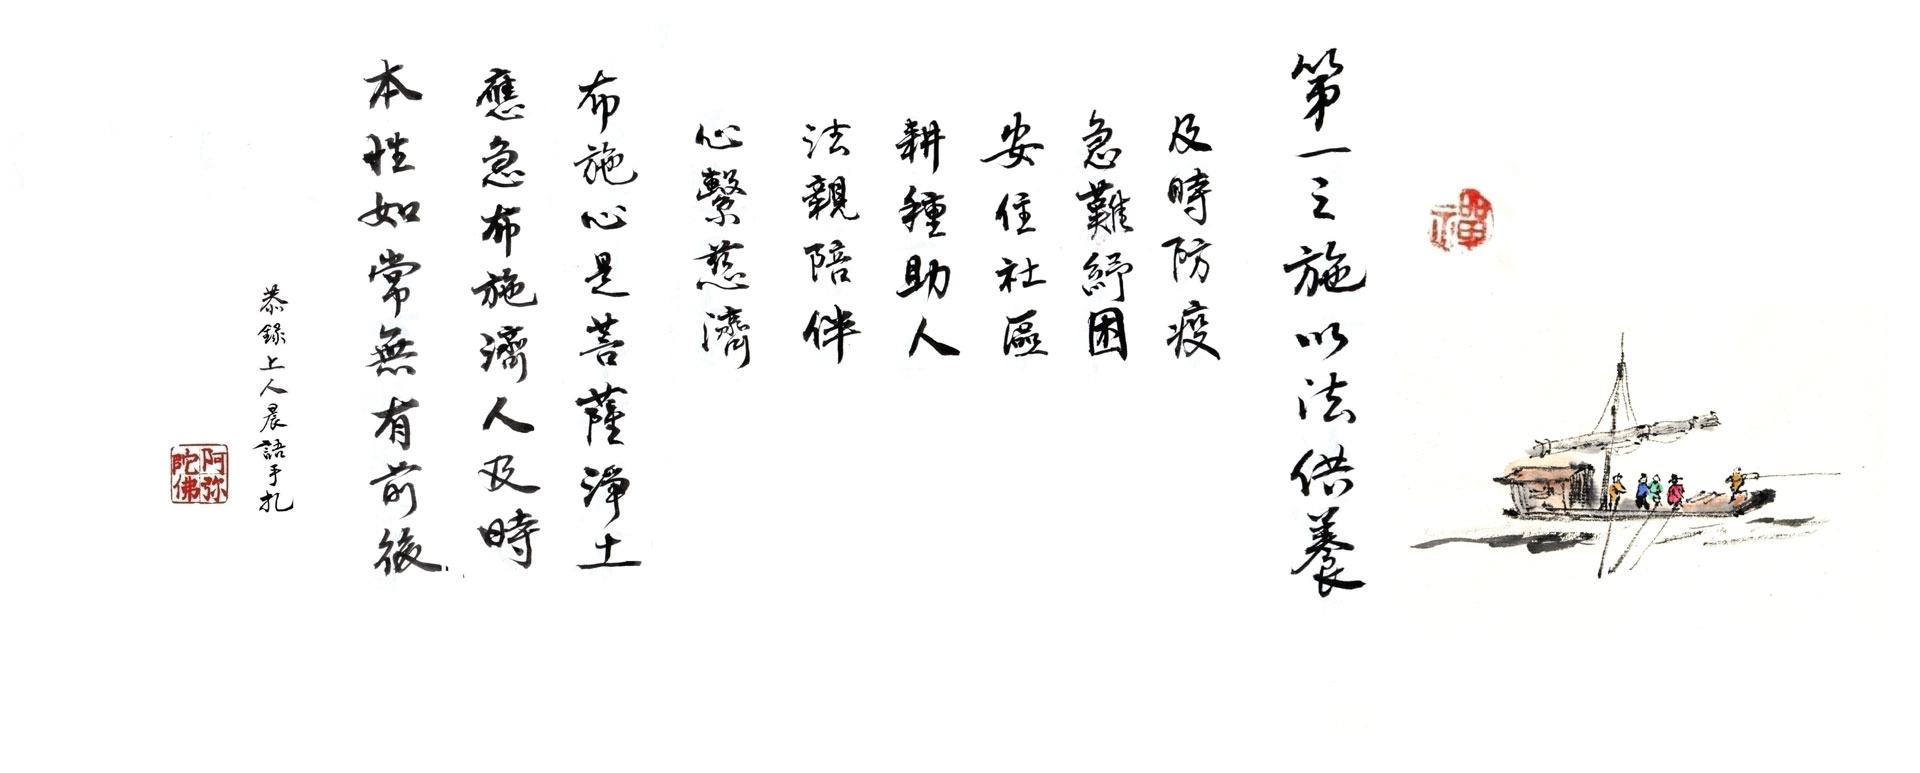 第一之施以法供養
及時防疫
急難紓困
安住社區
耕種助人
法親陪伴
心繫慈濟
布施心是菩薩淨土
應急布施濟人及時
本性如常無有前後
恭錄上人晨語手札
阿弥陀佛